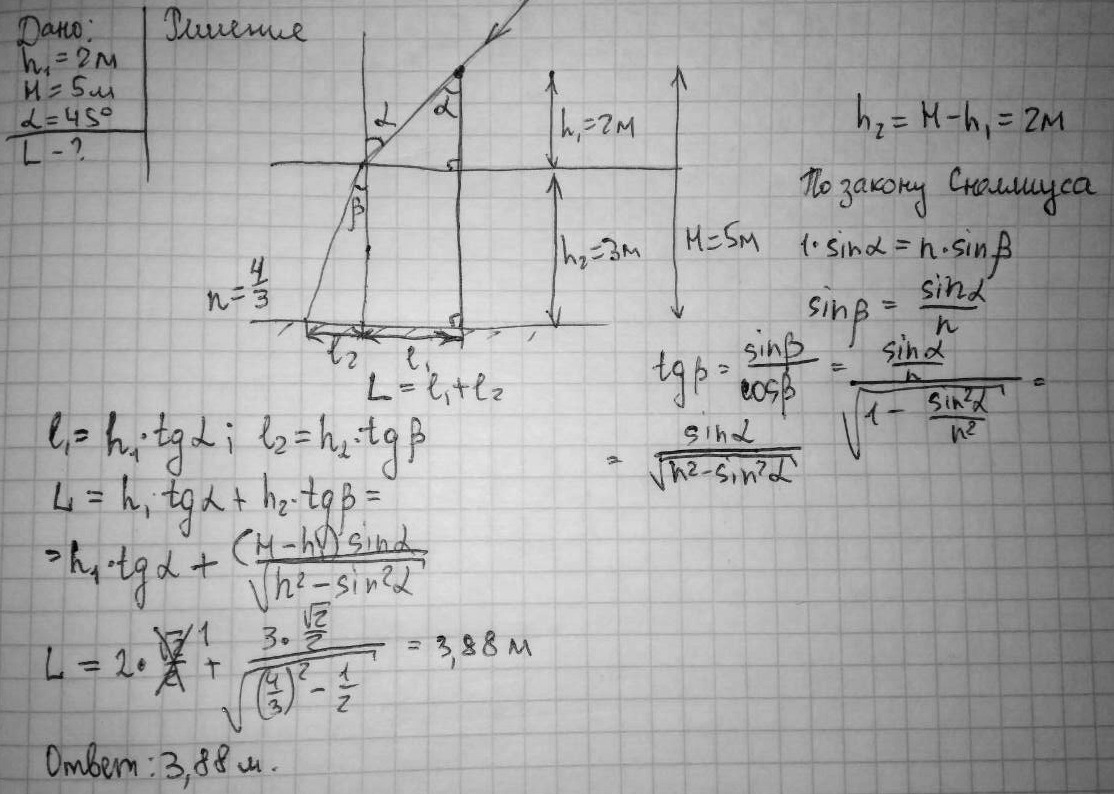 Дано:
h₁=2м
H=5м
α=45°
L-?
Решение
α
α
β
h₁=2м
h₂=3м
H=5м
n=4/3
l₂
l₁
L=l₁+l₂
h₂=H-h₁=2м
По закону Снеллиуса
1·sinα=n·sinβ
sinβ=sinα/n
tgβ=sinβ/cosβ=(sinα/n)/√(1-sin²α/n²)=
=sinα/√(n²-sin²α)
l₁=h₁·tgα; l₂=h₂·tgβ
L=h₁·tgα+h₂·tgβ=
=h₁·tgα+(H-h₁)sinα/√(n²-sin²α)
L=2·1+(3·√2/2)/√((4/3)²-1/2)=3,88м
Ответ: 3,88м.